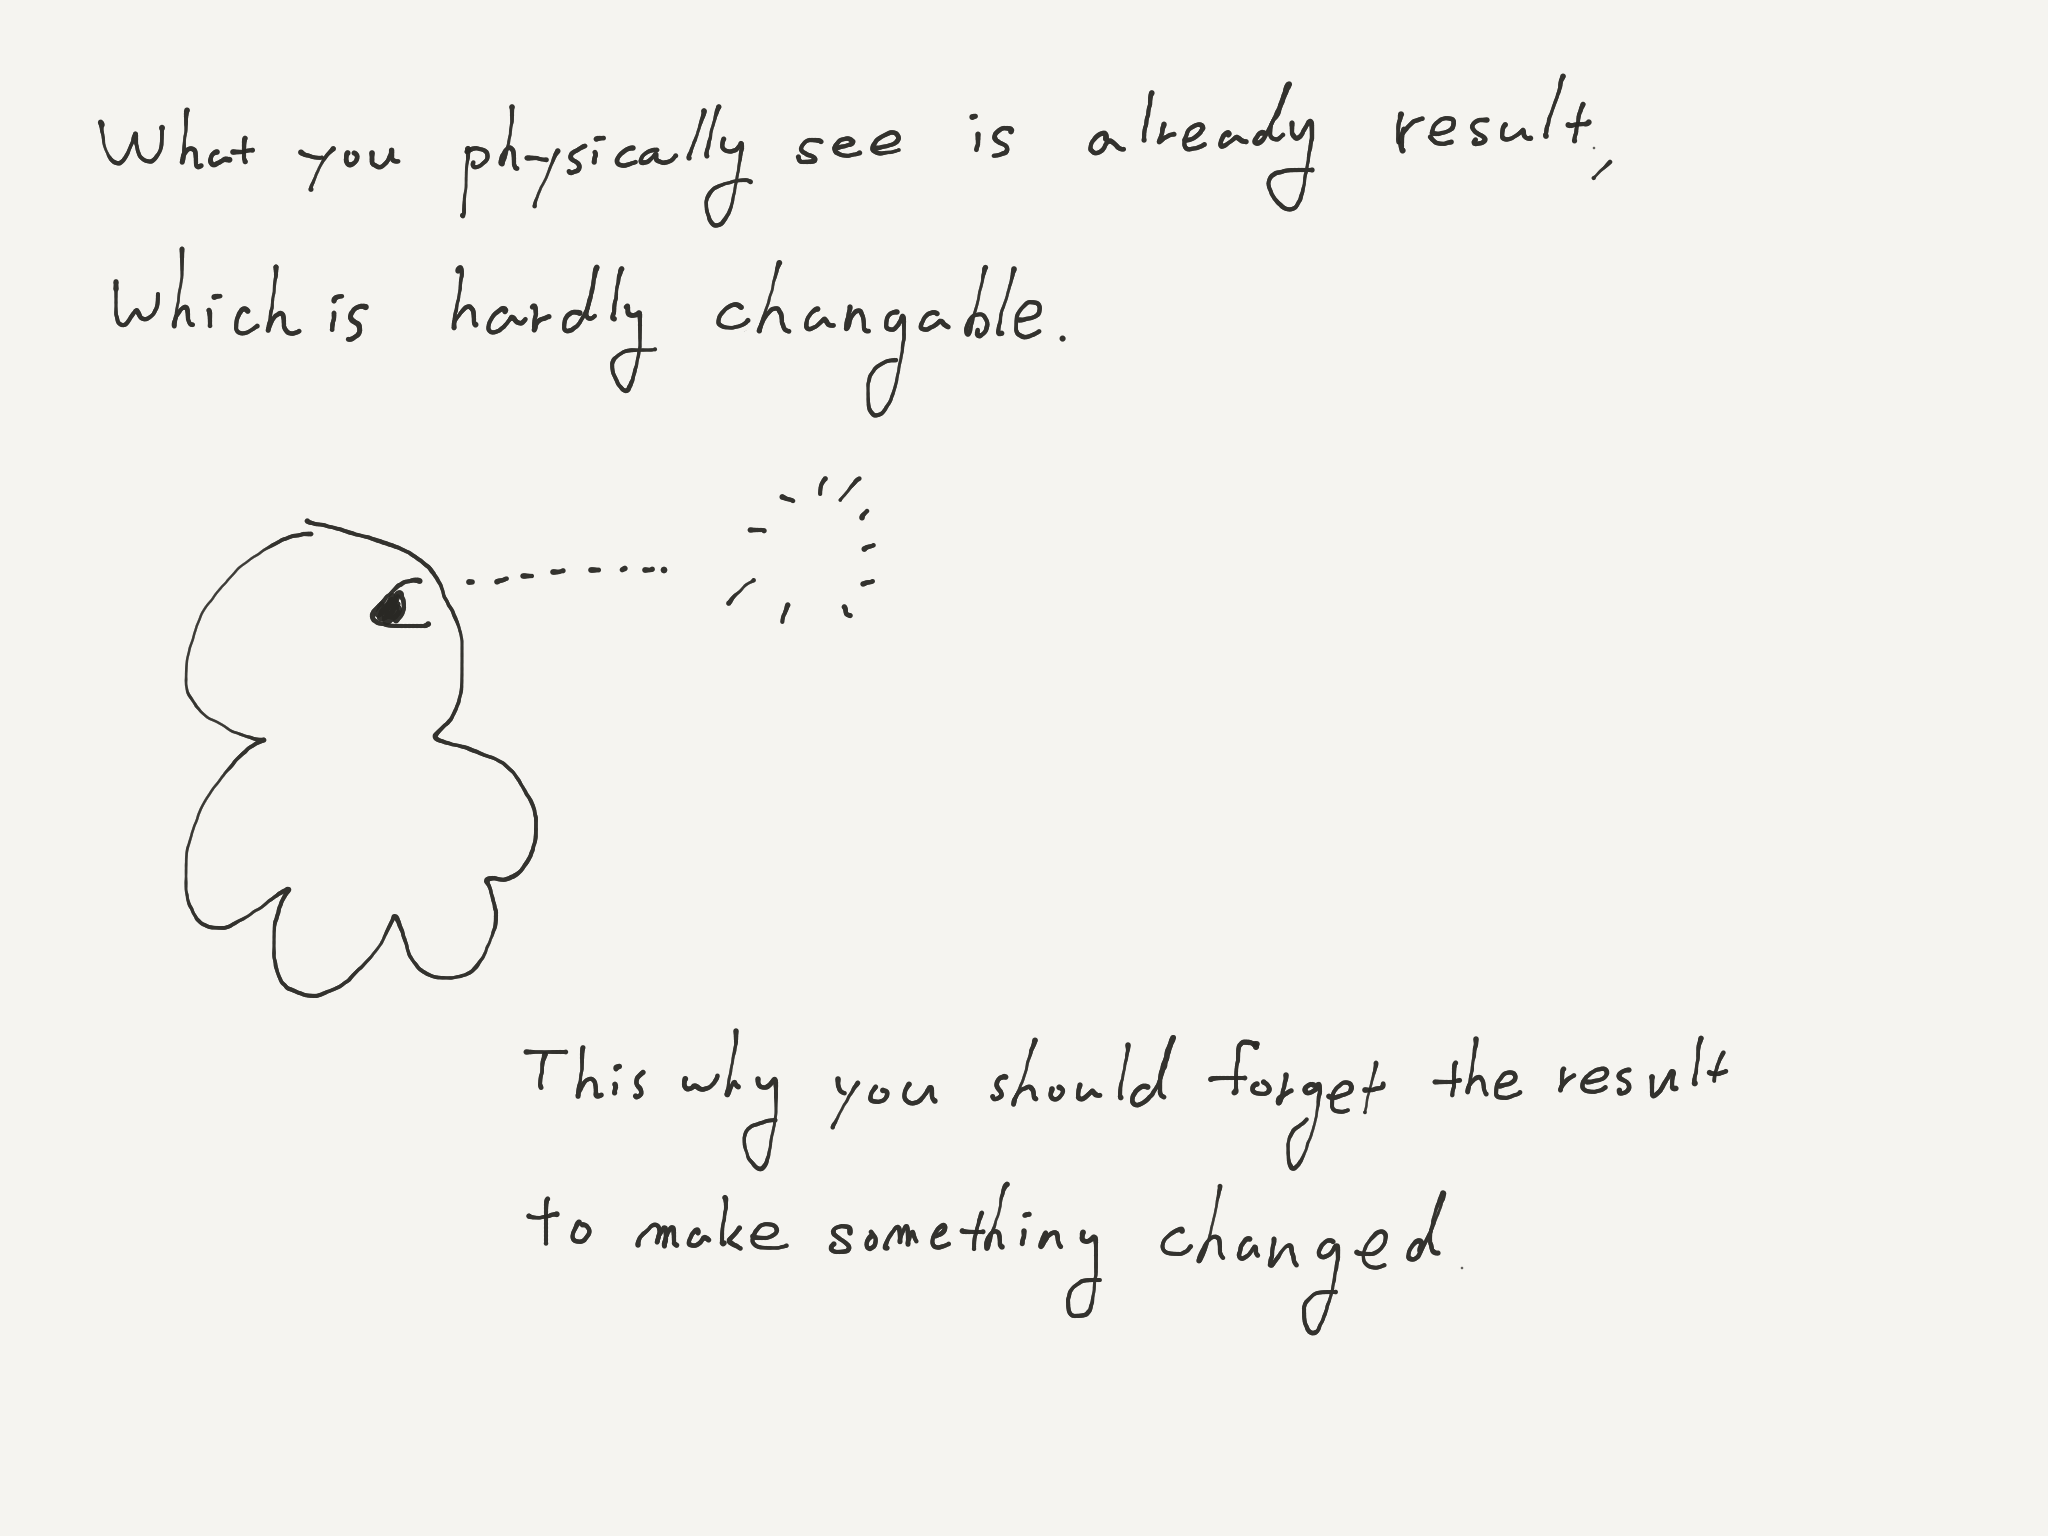 What you physically see is already result,
Which is hardly changable.
This why you should forget the result
to make something changed.